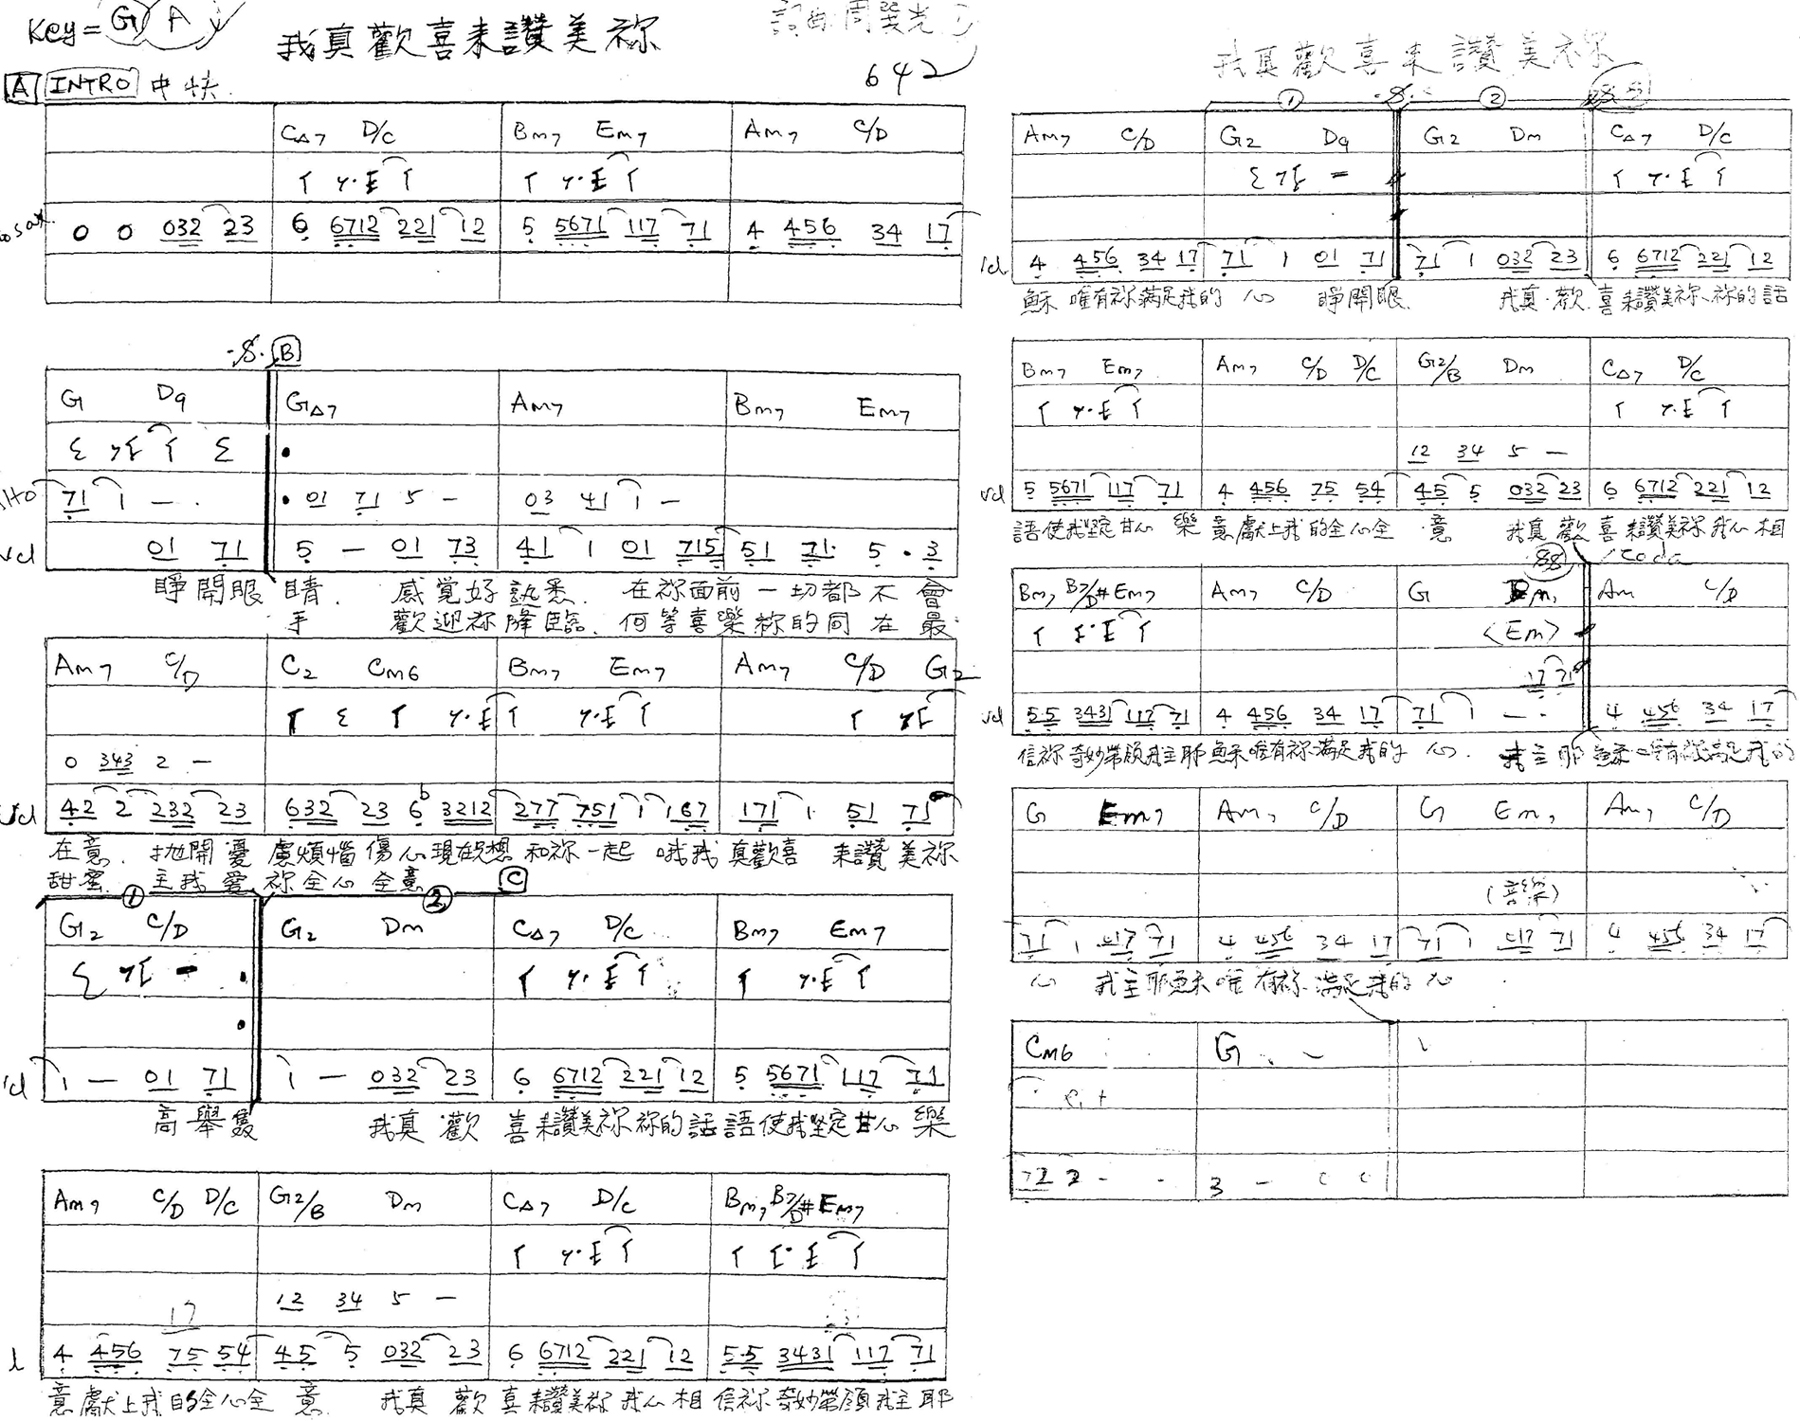 Key = G A
我真歡喜来讚美祢
642
A INTRO 中快
C△7 D/C Bm7 Em7 Am7 C/D
0 0 032 23 6 6712 221 12 5 5671 117 71 4 456 34 17
B
G D9 G△7 Am7 Bm7 Em7
71 1 — 01 71 5 — 03 41 1 —
vcl 01 71 5 — 01 73 41 1 01 715 51 71 5 . 3
睜開眼 睛. 感覚好熟悉. 在祢面前一切都不會
手 歡迎祢降臨. 何等喜樂祢的同在最
Am7 C/D C2 Cm6 Bm7 Em7 Am7 C/D G2
0 343 2 —
vcl 42 2 232 23 632 23 6 b 3212 277 751 1 167 171 1 51 71
在意. 拋開憂慮煩惱傷心現在只想和祢一起 哦我真歡喜 来讚美祢
甜蜜. 主我愛祢全心全意
① ② C
G2 C/D G2 Dm C△7 D/C Bm7 Em7
1 — 01 71 1 — 032 23 6 6712 221 12 5 5671 117 71
高舉雙 我真歡喜来讚美祢祢的話語使我堅定甘心樂
Am7 C/D D/C G2/B Dm C△7 D/C Bm7 B7/D# Em7
17 12 34 5 —
4 456 75 54 45 5 032 23 6 6712 221 12 5 5 3431 117 71
意獻上我的全心全意. 我真歡喜来讚美祢我心相信祢奇妙帶領我主耶
我真歡喜来讚美祢
① ②
Am7 C/D G2 D9 G2 Dm C△7 D/C
4 456 34 17 71 1 01 71 71 1 032 23 6 6712 221 12
穌 唯有祢滿足我的心 睜開眼. 我真歡喜来讚美祢、祢的話
Bm7 Em7 Am7 C/D D/C G2/B Dm C△7 D/C
12 34 5 —
vcl 5 5671 117 71 4 456 75 54 45 5 032 23 6 6712 221 12
語使我堅定甘心樂意獻上我的全心全意 我真歡喜来讚美祢我心相
coda
Bm7 B7/D# Em7 Am7 C/D G Am C/D
<Em>
17 71
vcl 55 3431 117 71 4 456 34 17 71 1 — . 4 456 34 17
信祢奇妙帶領我主耶穌唯有祢滿足我的心. 我主耶穌唯有祢滿足我的
G Em7 Am7 C/D G Em7 Am7 C/D
(音樂)
71 1 017 71 4 456 34 17 71 1 017 71 4 456 34 17
心 我主耶穌唯有祢滿足我的心
Cm6 G
3 —